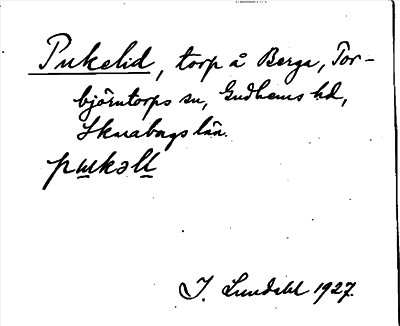 Pukelid, torp å Berga, Tor-
björntorps sn, Gudhems hd,
Skarabogs län.
pukəll
I. Lundahl 1927.